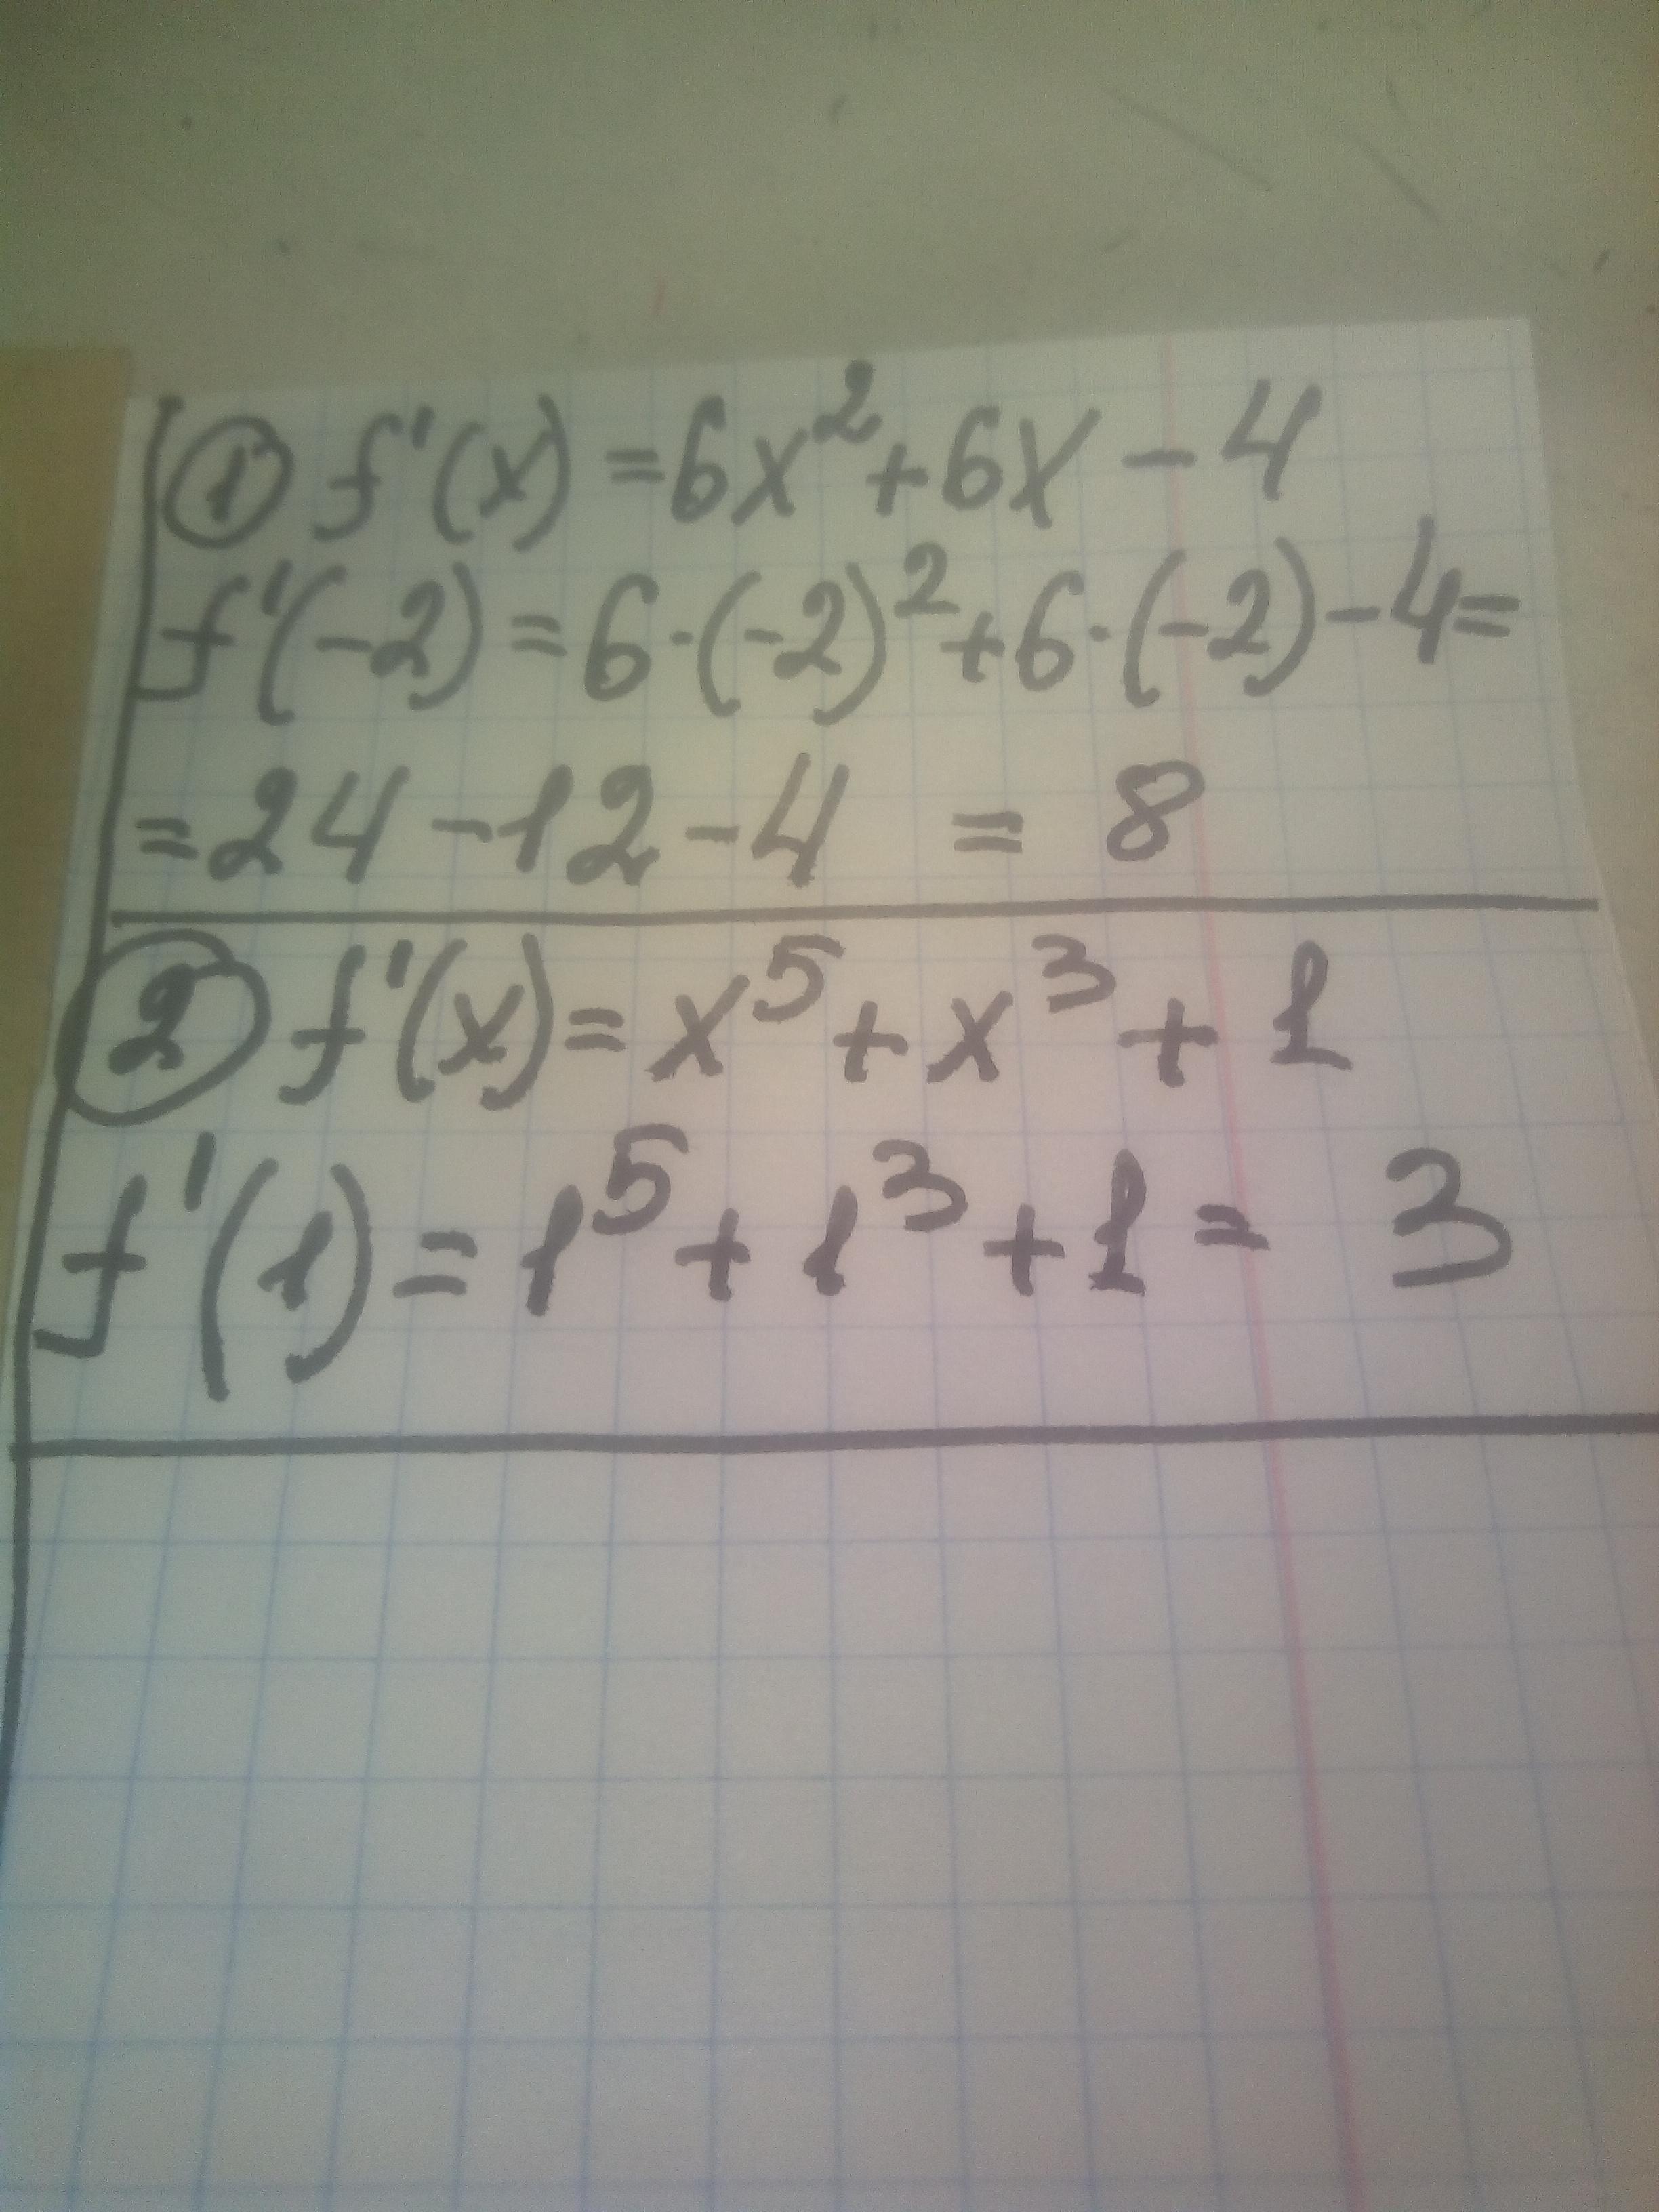 ① f'(x) = 6x² + 6x - 4
f'(-2) = 6·(-2)² + 6·(-2) - 4 =
= 24 - 12 - 4 = 8
② f'(x) = x⁵ + x³ + 1
f'(1) = 1⁵ + 1³ + 1 = 3